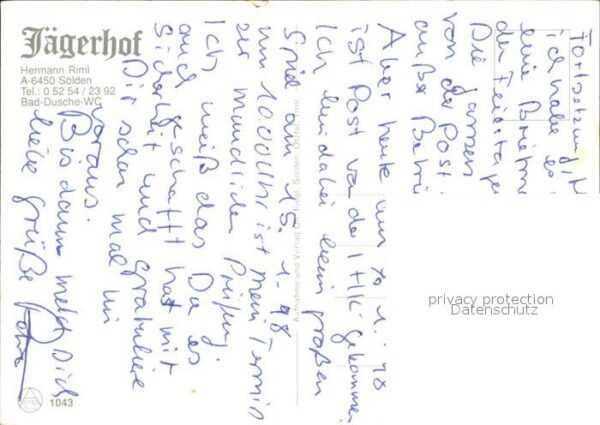 Jägerhof
Hermann Riml
A-6450 Sölden
Tel.: 0 52 54 / 23 92
Bad-Dusche-WC
Fortsetzung,
ich habe
eine
der Feiertage
Die lassen
von der Post
außer
Aber heute am
ist Post von der IHK gekommen
Ich bin dabei beim großen
Spiel am 15. 1. 98
um 10.00 Uhr ist mein Termin
zur mündlichen Prüfung.
Ich weiß das Du es
auch geschafft hast mit
Sicherheit und gratuliere
Dir schon mal im
voraus.
Bis dann meld Dich
liebe Grüße
Aufnahme und Verlag
Sölden, Ötztal, Tirol
privacy protection
Datenschutz
1043